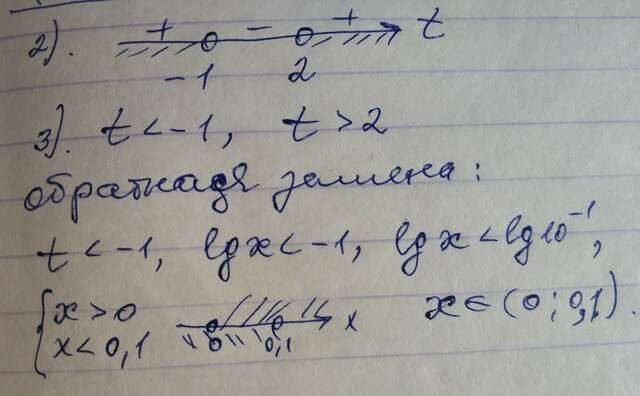 2). + − + t
−1 2
3). t < −1, t > 2
обратная замена:
t < −1, lg x < −1, lg x < lg 10⁻¹,
{ x > 0
x < 0,1
0 0,1 x
x ∈ (0; 0,1).